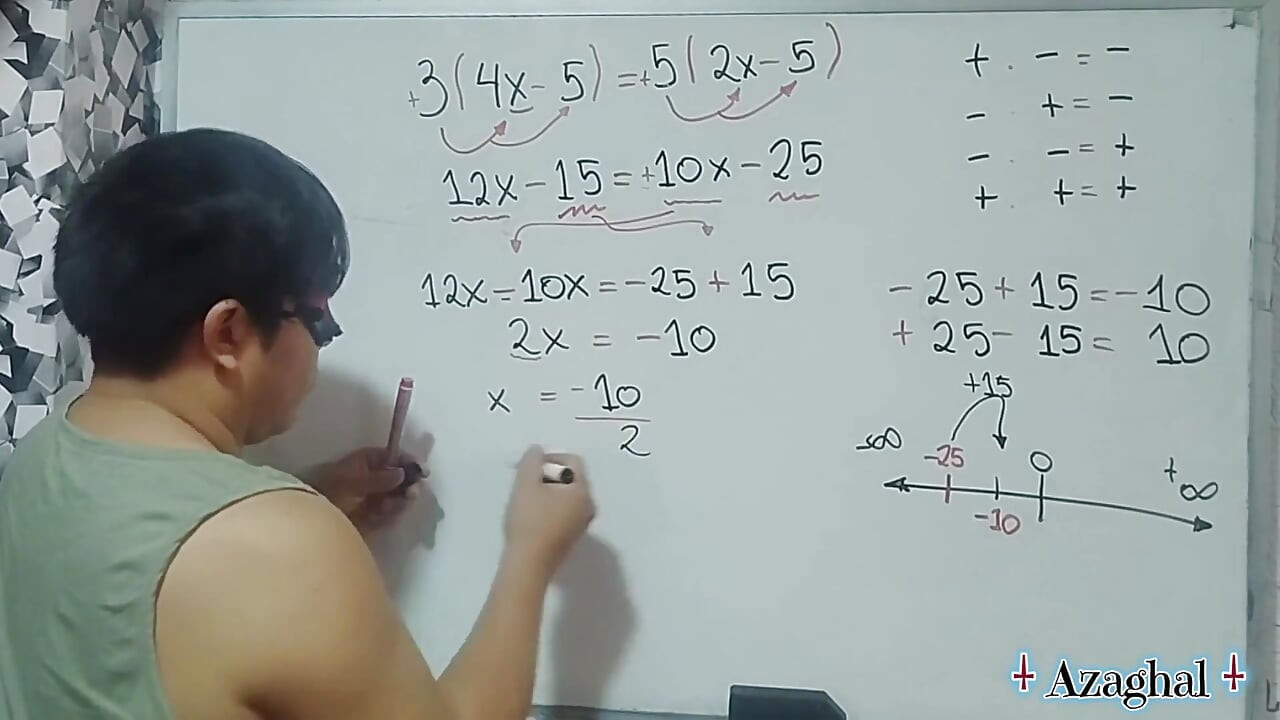 +3(4x-5)=+5(2x-5)
12x-15=+10x-25
12x-10x=-25+15
2x = -10
x = -10
2
+ . - = -
- + = -
- . - = +
+ . + = +
-25+15=-10
+25-15= 10
+15
-∞ -25 0 +∞
-10
Azaghal